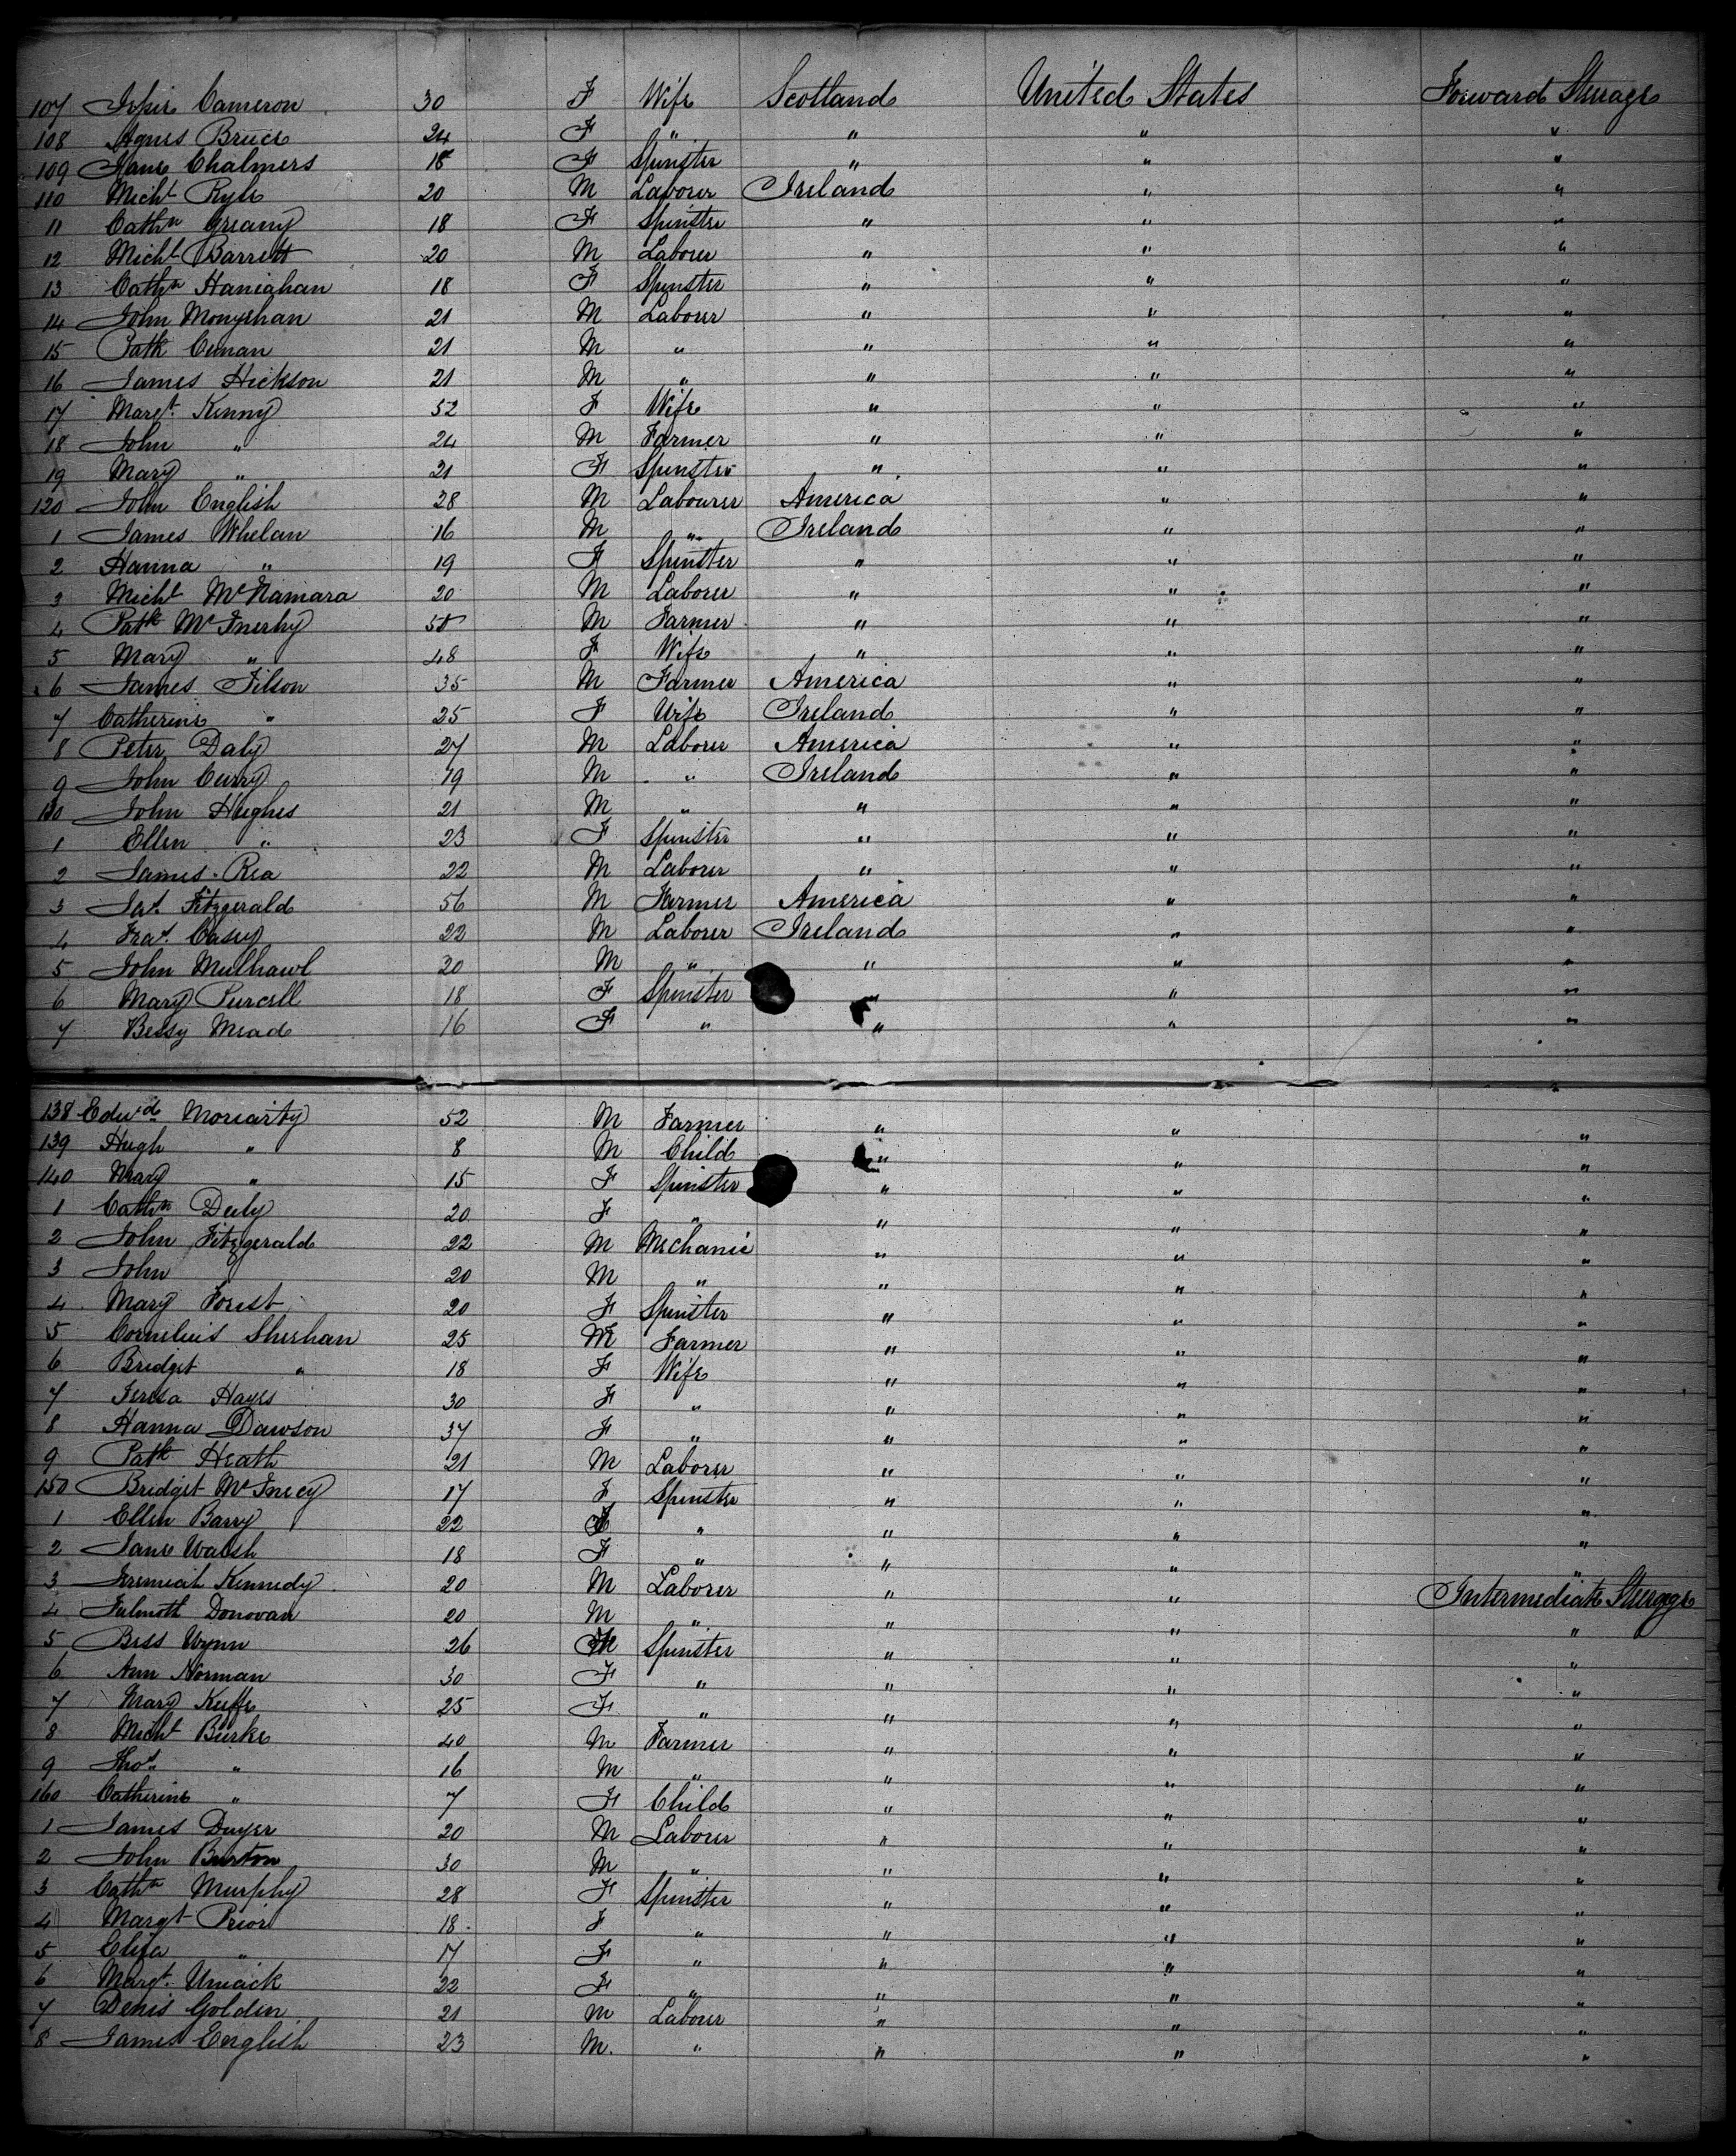 107 Jessie Cameron 30 F Wife Scotland United States Forward Steerage
108 Agnes Bruce 24 F " " " "
109 Jane Chalmers 18 F Spinster " " "
110 Michl Ryle 20 M Laborer Ireland " "
11 Cathn Greany 18 F Spinster " " "
12 Michl Barrett 20 M Laborer " " "
13 Cathn Hanighan 18 F Spinster " " "
14 John Monyehan 21 M Laborer " " "
15 Patk 21 M " " " "
16 James Hickson 21 M " " " "
17 Margt. Kenny 52 F Wife " " "
18 John " 24 M Farmer " " "
19 Mary " 21 F Spinster " " "
120 John English 28 M Labourer America " "
1 James Whelan 16 M " Ireland " "
2 Hanna " 19 F Spinster " " "
3 Michl McNamara 20 M Laborer " " "
4 Patk McInerhy M Farmer " " "
5 Mary " 48 F Wife " " "
6 James Filson 35 M Farmer America " "
7 Catherine " 25 F Wife Ireland " "
8 Peter Daly 27 M Laborer America " "
9 John Curry 19 M " Ireland " "
130 John Hughes 21 M " " " "
1 Ellen " 23 F Spinster " " "
2 James Rea 22 M Laborer " " "
3 Jas. Fitzgerald 56 M Farmer America " "
4 Fras. Casey 22 M Laborer Ireland " "
5 John Mulhawl 20 M " " " "
6 Mary Purcell 18 F Spinster " " "
7 Bessy Mead 16 F " " " "
138 Edwd Moriarty 52 M Farmer " " "
139 Hugh " 8 M Child " " "
140 Mary " 15 F Spinster " " "
1 Cathn Deely 20 F " " " "
2 John Fitzgerald 22 M Mechanic " " "
3 John 20 M " " " "
4 Mary Forest 20 F Spinster " " "
5 Cornelius Sheehan 25 M Farmer " " "
6 Bridget " 18 F Wife " " "
7 Teresa Hayes 30 F " " " "
8 Hanna Dawson 37 F " " " "
9 Patk Heath 21 M Laborer " " "
150 Bridget McInecy 17 F Spinster " " "
1 Ellen Barry 22 F " " " "
2 Jane Walsh 18 F " " " "
3 Jeremiah Kennedy 20 M Laborer " " Intermediate Steerage
4 Donovan 20 M " " " "
5 Bess Wynn 26 Spinster " " "
6 Ann Norman 30 F " " " "
7 Mary Keeffe 25 F " " " "
8 Michl Burke 40 M Farmer " " "
9 Thos. " 16 M " " " "
160 Catherine " 7 F Child " " "
1 James Dwyer 20 M Laborer " " "
2 John Burton 30 M " " " "
3 Cathn Murphy 28 F Spinster " " "
4 Margt Prior 18 F " " " "
5 Eliza " 17 F " " " "
6 Margt. Uniack 22 F " " " "
7 Denis Golden 21 M Laborer " " "
8 James English 23 M. " " " "